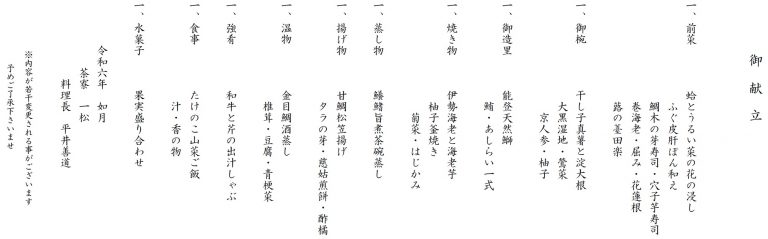 御献立
一、前菜
蛤とうるい菜の花の浸し
ふぐ皮肝ぽん和え
鯛木の芽寿司・穴子芋寿司
巻海老・屈み・花蓮根
蕗の薹田楽
一、御椀
干し子真薯と淀大根
大黒湿地・鶯菜
京人参・柚子
一、御造里
能登天然鰤
鮪・あしらい一式
一、焼き物
伊勢海老と海老芋
柚子釜焼き
菊菜・はじかみ
一、蒸し物
鱶鰭旨煮茶碗蒸し
一、揚げ物
甘鯛松笠揚げ
タラの芽・慈姑煎餅・酢橘
一、温物
金目鯛酒蒸し
椎茸・豆腐・青梗菜
一、強肴
和牛と芹の出汁しゃぶ
一、食事
たけのこ山菜ご飯
汁・香の物
一、水菓子
果実盛り合わせ
令和六年　如月
茶寮　一松
料理長　平井善道
※内容が若干変更される事がございます
予めご了承下さいませ